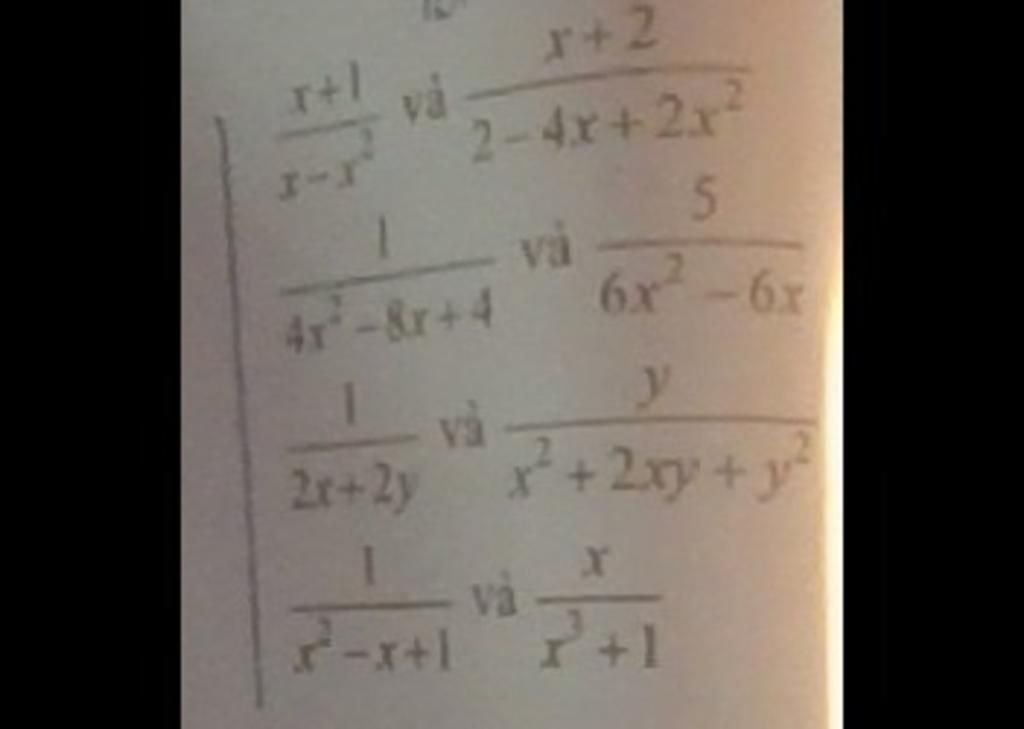 \frac{x+1}{x-x^2} và \frac{x+2}{2-4x+2x^2}
\frac{1}{4x^2-8x+4} và \frac{5}{6x^2-6x}
\frac{1}{2x+2y} và \frac{y}{x^2+2xy+y^2}
\frac{1}{x^2-x+1} và \frac{x}{x^3+1}